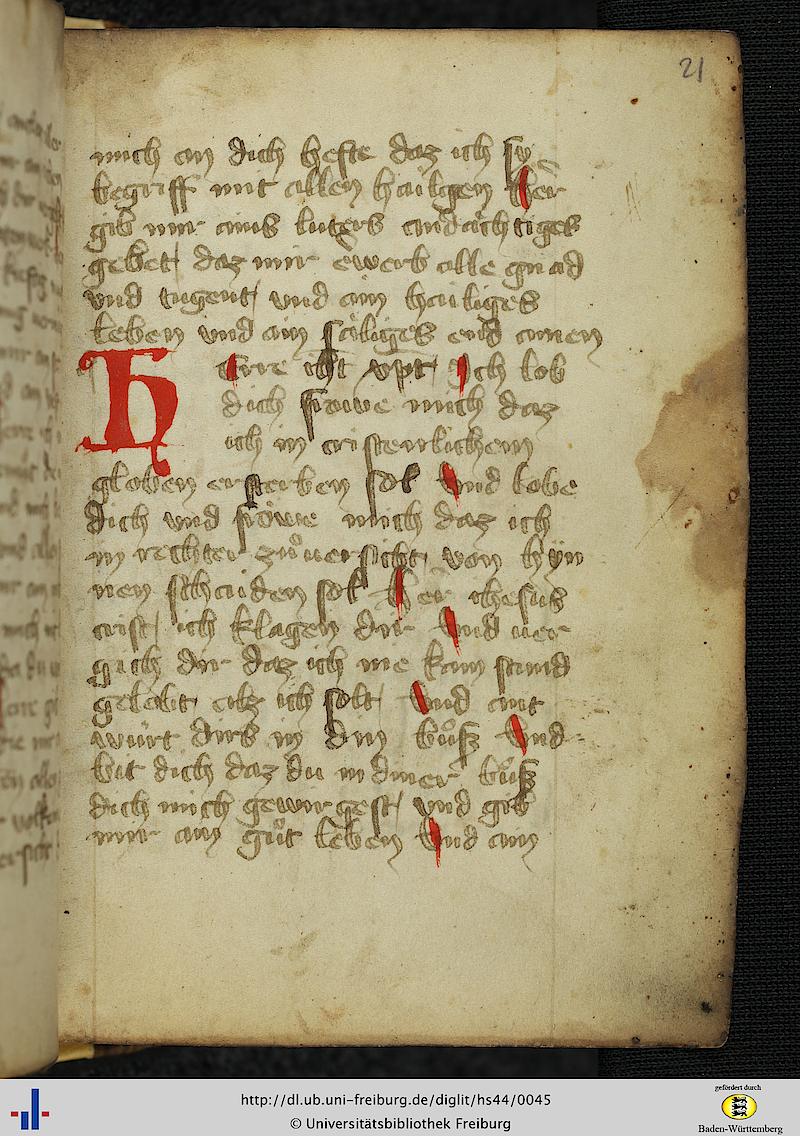 21
mich an dich hefte daz ich sy
begriff mit allen hailgen her
gib mir ains luters andächtiges
gebet daz mir erwerb alle gnad
vnd tugent vnd ain hailiges
leben vnd ain säliges end amen
Herre iht xpt Ich lob
dich fröwe mich daz
ich in cristenlichem
globen ersterben sol Vnd lobe
dich vnd fröwe mich daz ich
in rechter zůuersicht von hyn
nen schaiden sol her ihesus
crist ich klagen dir Vnd uer
gich dir daz ich nie kain stund
gelebt alz ich solt Vnd ant
würt dirs in din bůsz Vnd
bit dich daz du in diner bůsz
dich mich gewirgest vnd gib
mir ain gůt leben Vnd ain
http://dl.ub.uni-freiburg.de/diglit/hs44/0045
© Universitätsbibliothek Freiburg
gefördert durch
Baden-Württemberg